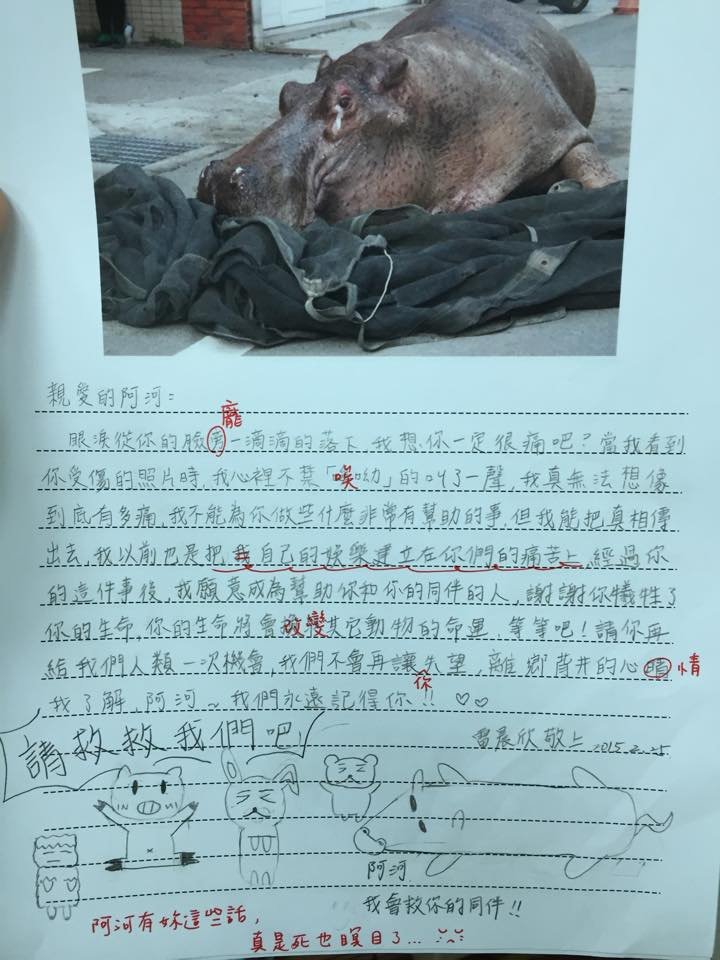 親愛的阿河：
龐
眼淚從你的臉旁一滴滴的落下,我想你一定很痛吧？當我看到
你受傷的照片時,我心裡不禁「唉呦」的叫了一聲,我真無法想像
到底有多痛,我不能為你做些什麼非常有幫助的事,但我能把真相傳
出去,我以前也是把我自己的娛樂建立在你們的痛苦上,經過你
的這件事後,我願意成為幫助你和你的同伴的人,謝謝你犧牲了
你的生命,你的生命將會改變其它動物的命運,等等吧！請你再
給我們人類一次機會,我們不會再讓你失望,離鄉背井的心晴 情
我了解,阿河～我們永遠記得你!! ♡♡
請救救我們吧!
雷晨欣敬上 2015.2.25
阿河
我會救你的同伴!!
阿河有妳這些話,
真是死也瞑目了...